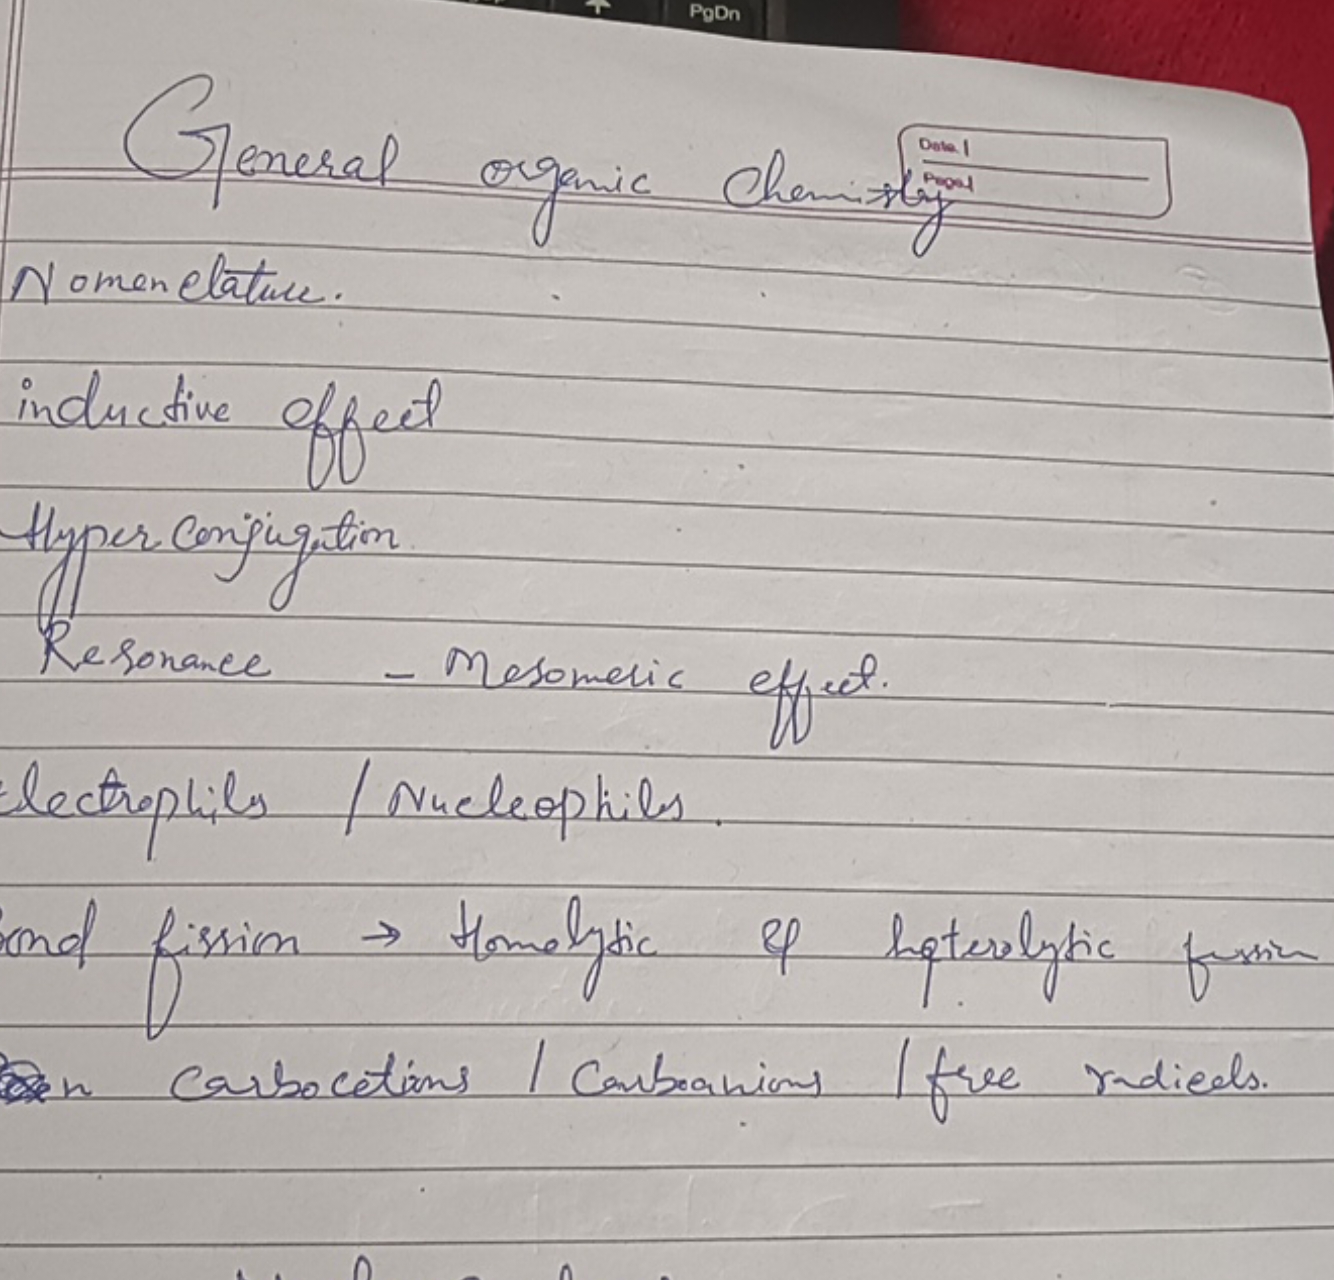 PgDn
General organic Chemistry
Date.
Page.
Nomenclature.
inductive effect
Hyperconjugation
Resonance - Mesomeric effect.
Electrophiles / Nucleophiles.
Bond fission → Homolytic & heterolytic fission
Carbocations / Carboanions / free radicals.